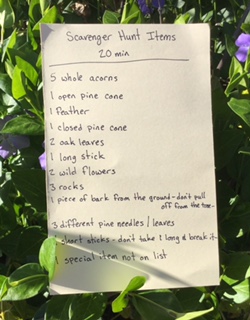 Scavenger Hunt Items
20 min
5 whole acorns
1 open pine cone
1 feather
1 closed pine cone
2 oak leaves
1 long stick
2 wild flowers
3 rocks
1 piece of bark from the ground - don't pull
off from the tree -
3 different pine needles / leaves
short sticks - don't take 1 long & break it
1 special item not on list